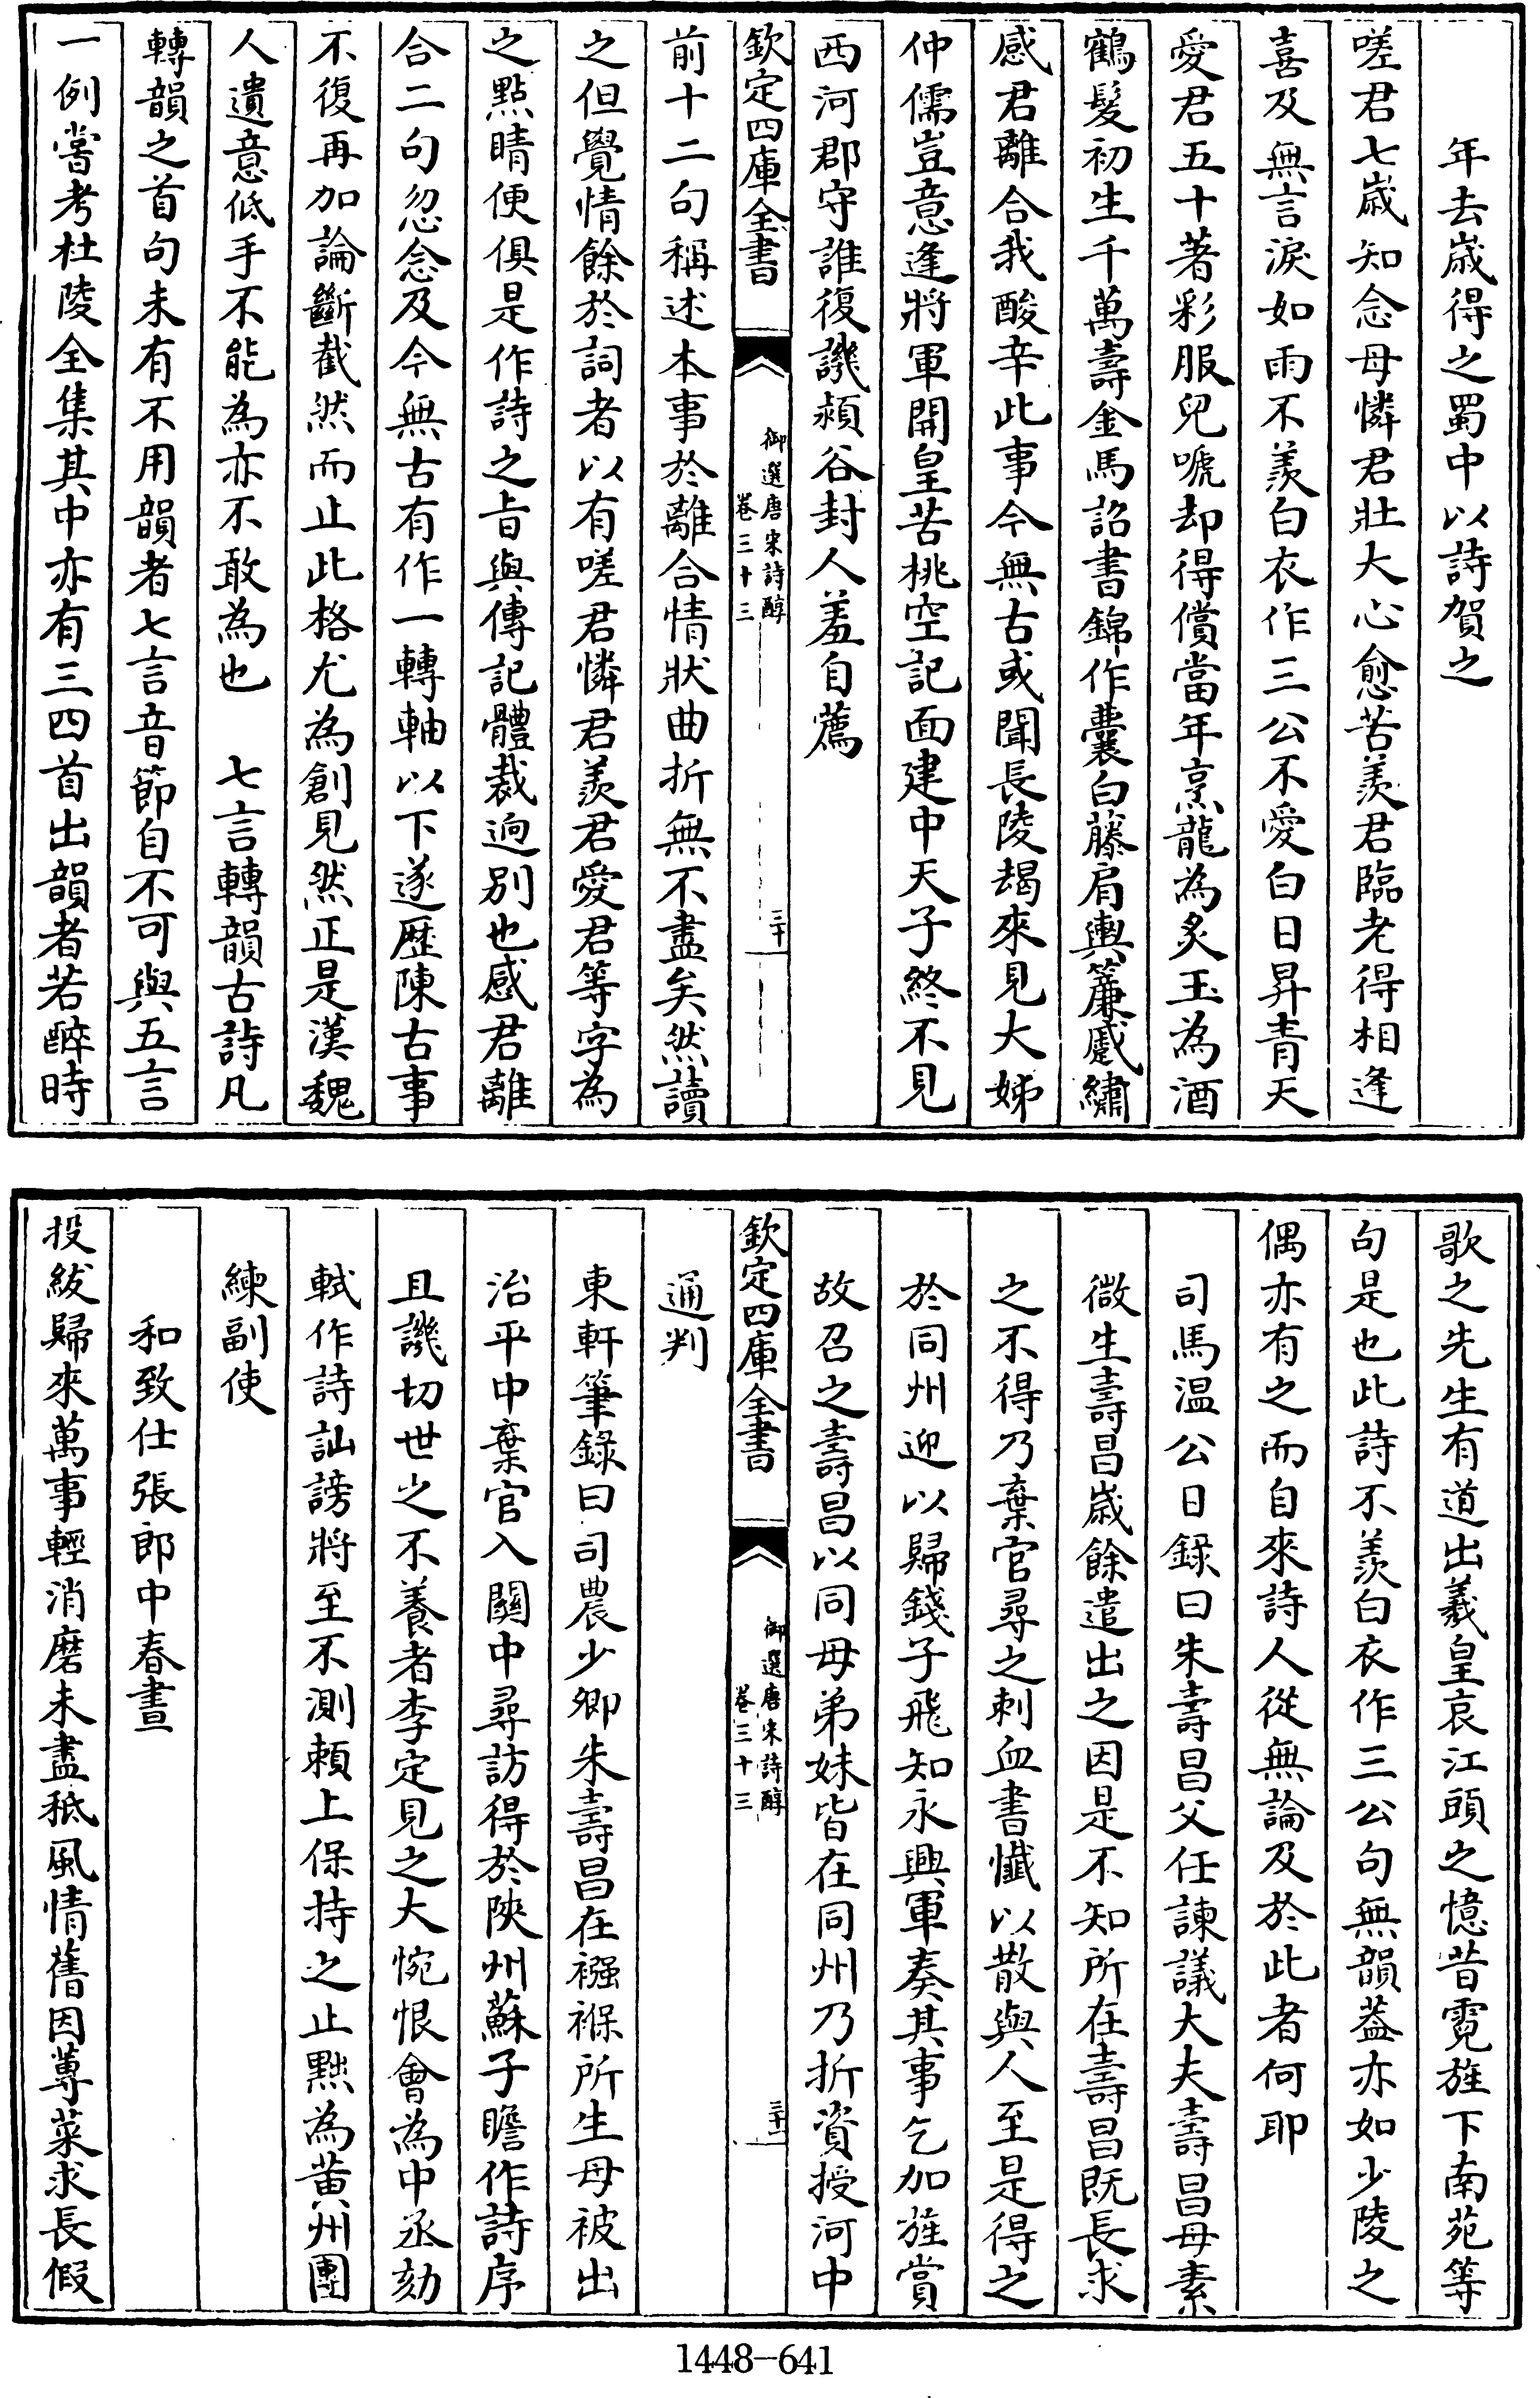 年去歲得之蜀中以詩賀之
嗟君七歲知念母憐君壯大心愈苦羨君臨老得相逢
喜及無言淚如雨不羨白衣作三公不愛白日昇青天
愛君五十著彩服兒啼却得償當年烹龍為炙玉為酒
鶴髮初生千萬壽金馬詔書錦作囊白藤肩輿簾蹙繡
感君離合我酸辛此事今無古或聞長陵朅來見大姊
仲儒豈意逢將軍開皇苦桃空記面建中天子終不見
西河郡守誰復譏潁谷封人羞自薦
欽定四庫全書
御選唐宋詩醇
卷三十三
三十
前十二句稱述本事於離合情狀曲折無不盡矣然讀
之但覺情餘於詞者以有嗟君憐君羨君愛君等字為
之點睛便俱是作詩之旨與傳記體裁迥别也感君離
合二句忽念及今無古有作一轉軸以下遂歷陳古事
不復再加論斷截然而止此格尤為創見然正是漢魏
人遺意低手不能為亦不敢為也　七言轉韻古詩凡
轉韻之首句未有不用韻者七言音節自不可與五言
一例嘗考杜陵全集其中亦有三四首出韻者若醉時
歌之先生有道出羲皇哀江頭之憶昔霓旌下南苑等
句是也此詩不羨白衣作三公句無韻葢亦如少陵之
偶亦有之而自來詩人從無論及於此者何耶
司馬温公日録曰朱壽昌父任諫議大夫壽昌母素
微生壽昌歲餘遣出之因是不知所在壽昌既長求
之不得乃棄官尋之刺血書懺以散與人至是得之
於同州迎以歸錢子飛知永興軍奏其事乞加旌賞
故召之壽昌以同母弟妹皆在同州乃折資授河中
欽定四庫全書
御選唐宋詩醇
卷三十三
三十一
通判
東軒筆錄曰司農少卿朱壽昌在襁褓所生母被出
治平中棄官入關中尋訪得於陜州蘇子瞻作詩序
且譏切世之不養者李定見之大惋恨會為中丞劾
軾作詩訕謗將至不測賴上保持之止黜為黄州團
練副使
和致仕張郎中春晝
投紱歸來萬事輕消磨未盡秪風情舊因蓴菜求長假
1448-641